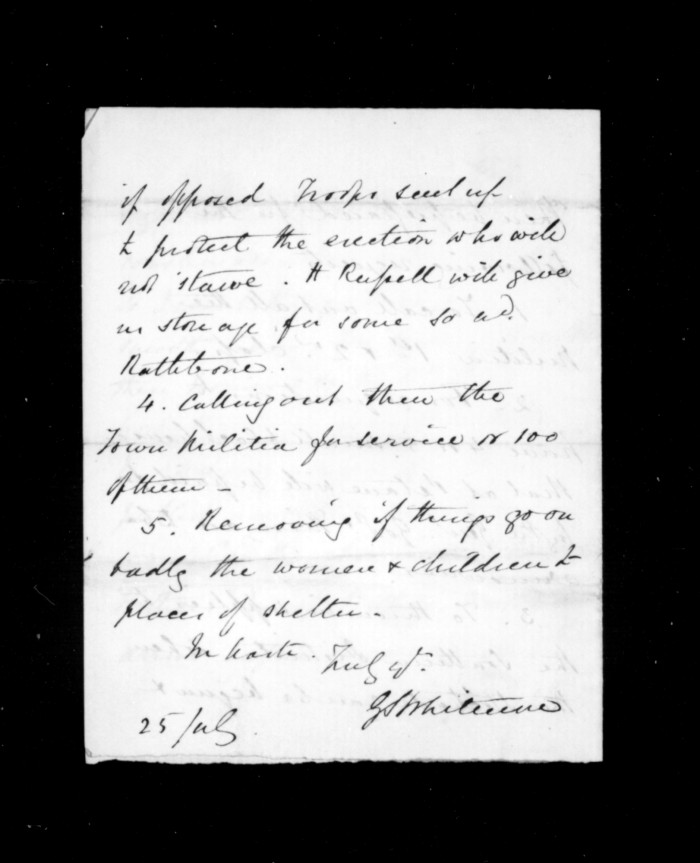 if opposed Troops sent up
to protect the erection who will
not starve. H Russell will give
us storage for some so ad.
Rathbone.
4. Calling out then the
Town Militia for service or 100
of them –
5. Removing if things go on
badly the women & children to
places of shelter.
In haste. Truly yrs.
GS Whitmore
25 July